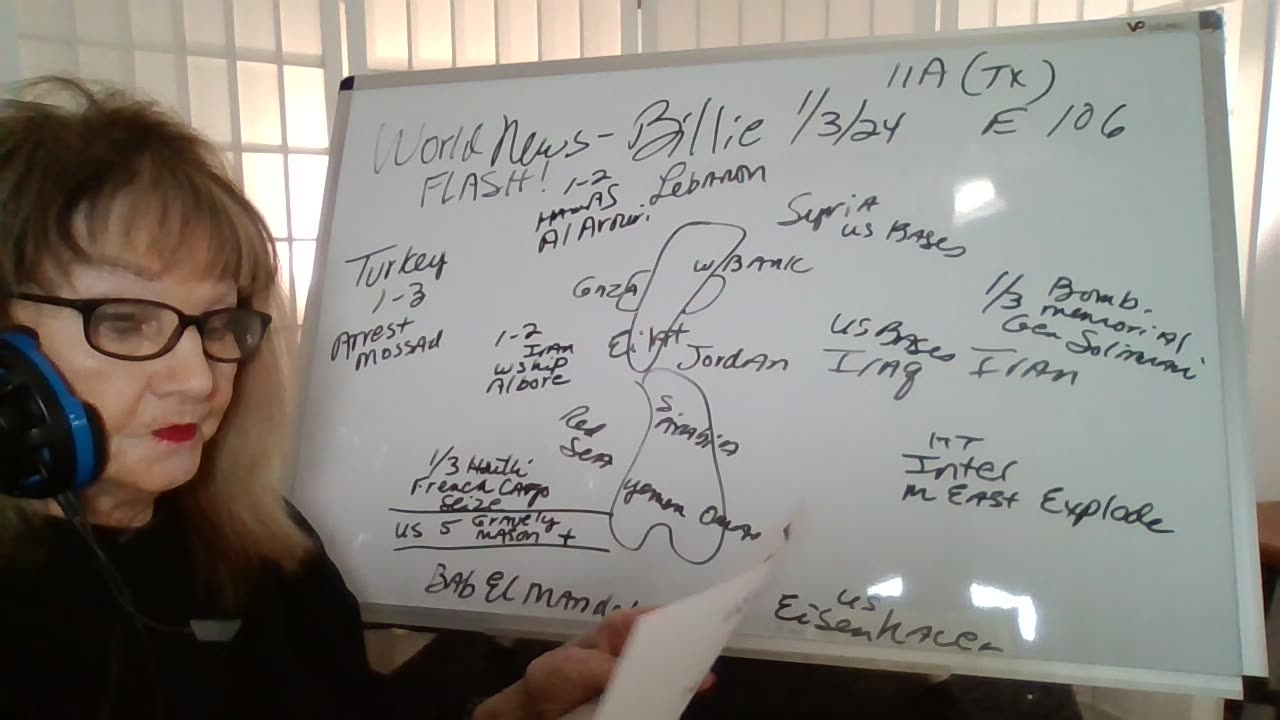 11A (TX)
World News - Billie 1/3/24 E 106
FLASH!
1-2
HAMAS
Al Arouri
Lebanon
Syria
US BASES
Turkey
1-3
Arrest
MOSSAd
GAZA
W/BANK
Eilat
1-2
IrAn
W ship
Albore
JordAn
US BASES
IrAq
1/3 Bomb.
memoriAl
Gen Solimani
IrAn
Red
SeA
S.
ArAbiA
yemen OmAn
1/3 Houthi
French CArgo
Seize
US 5 GrAvely
MAson +
BAb El MAnd
Intel
M EAST Explode
US
Eisenhower